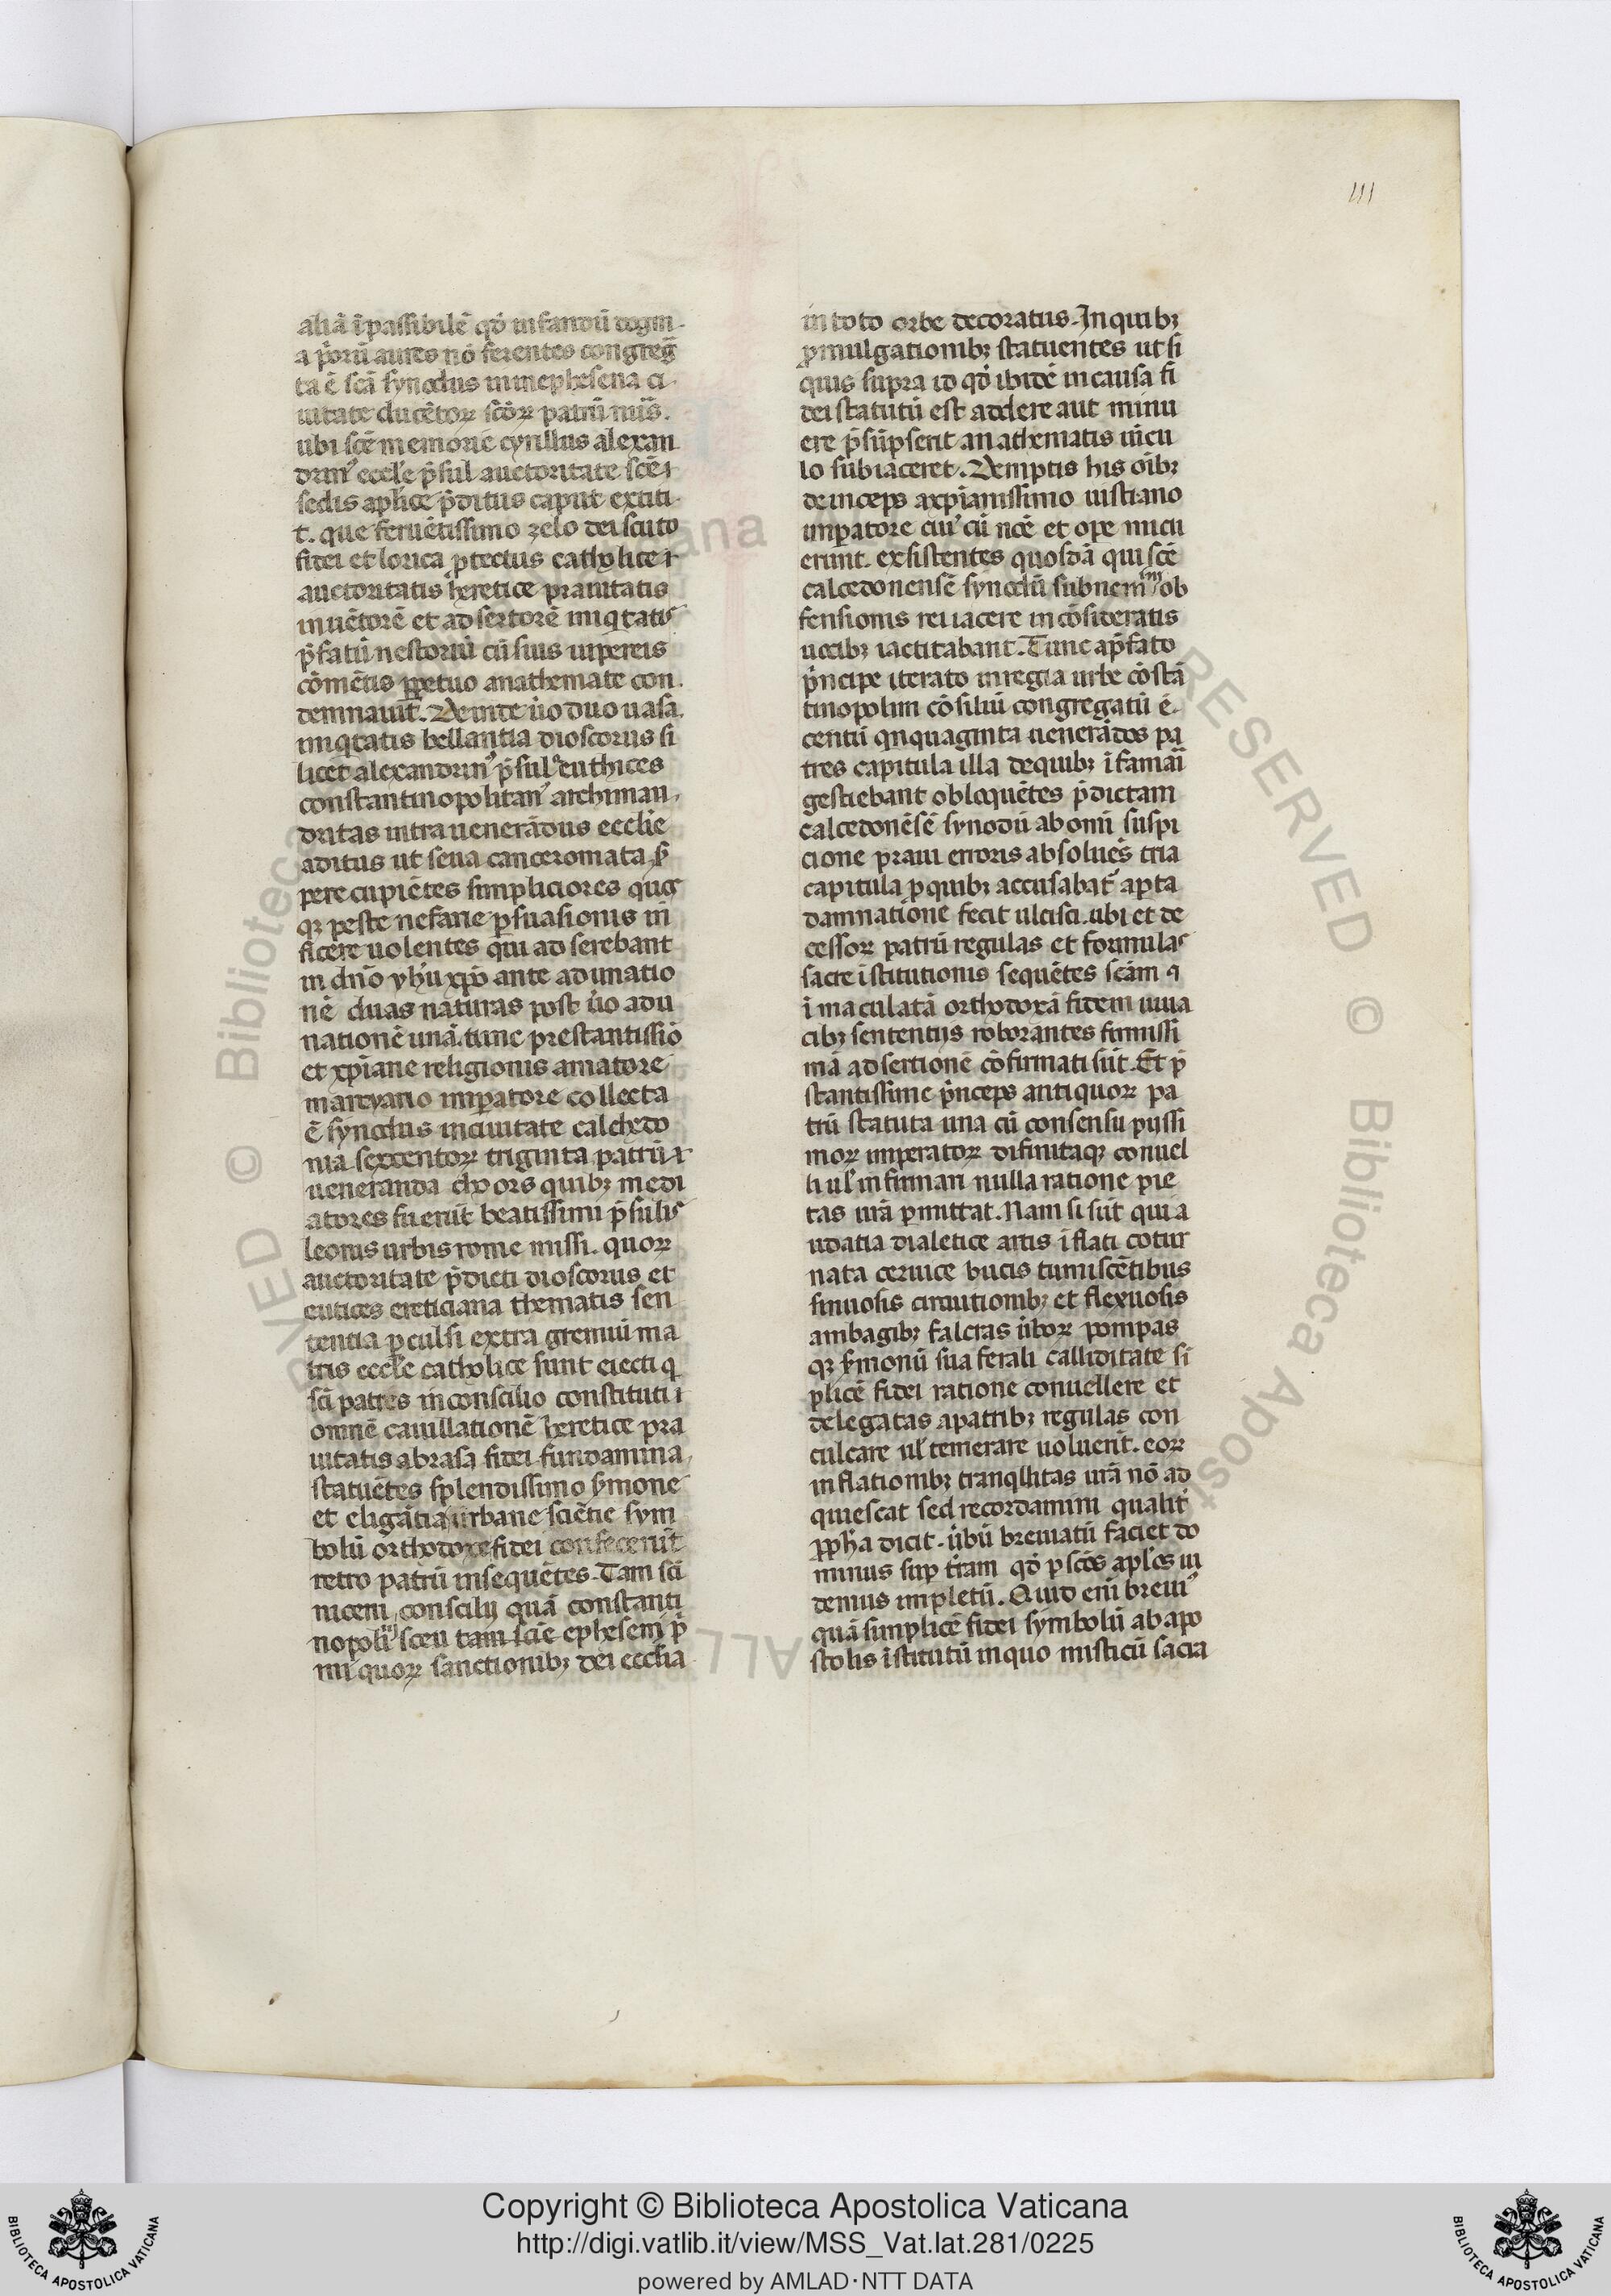 111
aliā ĩpassibilē qđ infandũ dogm
a p̾orũ aures nõ ferentes congreg̃
ta ẽ scã synodus in inephesena ci
uitate ducẽtoꝝ scõꝝ patrũ
ubi scẽ memorie cyrillus alexan
drin᾽ eccłe p̃sul auctoritate scẽ
sedis aplice p̃ditus caput extiti
t. que feruẽtissimo zelo dei scuto
fidei et lorica ꝓtectus catholice
auctoritatis heretice prauitatis
inuẽtorẽ et adsertorẽ iniqtatis
p̃fatũ nestoriũ cũ suis uipereis
cõmẽtis ꝑpetuo anathemate con
demnauit̃. Deinde ũo duo uasa
iniqtatis bellantia dioscorus si
licet alexandrin᾽ p̃sul euthices
constantinopolitan᾽ archiman
dritas intra uenerãdus ecclie
aditus ut seua canceromata
pere cupiẽtes simpliciores
qꝫ peste nefarie ꝑsuasionis in
ficere uolentes qui ad serebant
in dño yħu xp̃o ante adunatio
nẽ duas naturas post ũo adu
nationẽ unã. tunc prestantissiõ
et xp̃iane religionis amatore
martyano imꝑatore collecta
ẽ synodus in ciuitate calchedo
nia sexcentoꝝ triginta patrũ
ueneranda chors quibꝫ medi
atores fuerũt beatissimi p̃sulis
leonis urbis rome missi. quoꝝ
auctoritate p̃dicti dioscorus et
eutices ereticiana thematis sen
tentia ꝑculsi extra gremiũ ma
tris eccłe catholice sunt eiecti q
sci patres in conscilio constituti
omnẽ cauillationẽ heretice pra
uitatis abrasa fidei fundamina
statuẽtes splendissimo s̃mone
et eligãtia urbane sciẽtie sym
bolũ orthodoxe fidei confecerũt
retro patrũ insequẽtes. Tam sci
niceni conscilij quã constanti
nopoli sceu tam scie ephesem p̃
mi quoꝝ sanctionibꝫ dei ecclia
in toto orbe decoratus. In quibꝫ
ꝓmulgationibꝫ statuentes ut si
quis supra id qđ ibidẽ in causa fi
dei statutũ est addere aut minu
ere p̃sũpserit anathematis uĩcu
lo subiaceret. Demptis his oĩbꝫ
deinceps axpianissimo iustiano
imꝑatore ciu᾽ cũ ncẽ et ope micu
erunt. exsistentes quosdã qui scẽ
calcedonensẽ synodũ sub nem ob
fensionis rei iacere in cõsideratis
uocibꝫ iactitabant. Tunc ap̃fato
p̃ncipe iterato in regia urbe cõstã
tinopolim cõsiliũ congregatũ ẽ.
centũ qnquaginta uenerãdos pa
tres capitula illa de quibꝫ ĩfamaĩ
gestiebant obloquẽtes p̃dictam
calcedonẽsẽ synodũ ab omi suspi
cione praui erroris absolues̃ tria
capitula ꝓ quibꝫ accusabat᾽ apta
damnatione fecit ulcisci. ubi et de
cessoꝝ patrũ regulas et formulas
sacre ĩstitutionis sequẽtes scãm
ĩmaculatã orthodoxã fidem uiua
cibꝫ sententijs roborantes firmissi
mã adsertionẽ cõfirmati sũt. Et p̃
stantissime p̃nceps antiquoꝝ pa
trũ statuta una cũ consensu pijssi
moꝝ imperatoꝝ difinitaqꝫ conuel
li uł infirmari nulla ratione pie
tas urã ꝑmittat. Nam si sũt qui a
udatia dialetice artis ĩflati cotur
nata ceruice bucis tumiscẽtibus
sinuosis circutionibꝫ et flexuosis
ambagibꝫ falcras ũboꝝ pompas
qꝫ s̃monũ sua ferali calliditate si
plicẽ fidei ratione conuellere et
delegatas a patribꝫ regulas con
culcare uł temerare uoluerĩt. eoꝝ
inflationibꝫ tranqllitas urã nõ ad
quiescat sed recordamini qualit᾽
ꝓpħa dicit. ũbũ breuiatũ faciet do
minus suꝑ t̃ram qđ ꝑ scõs apłos ui
demus impletũ. Quid eni breui᾽
quã simplicẽ fidei symbolũ ab apo
stolis ĩstitutũ in quo misticũ sacra
Copyright © Biblioteca Apostolica Vaticana
http://digi.vatlib.it/view/MSS_Vat.lat.281/0225
powered by AMLAD·NTT DATA